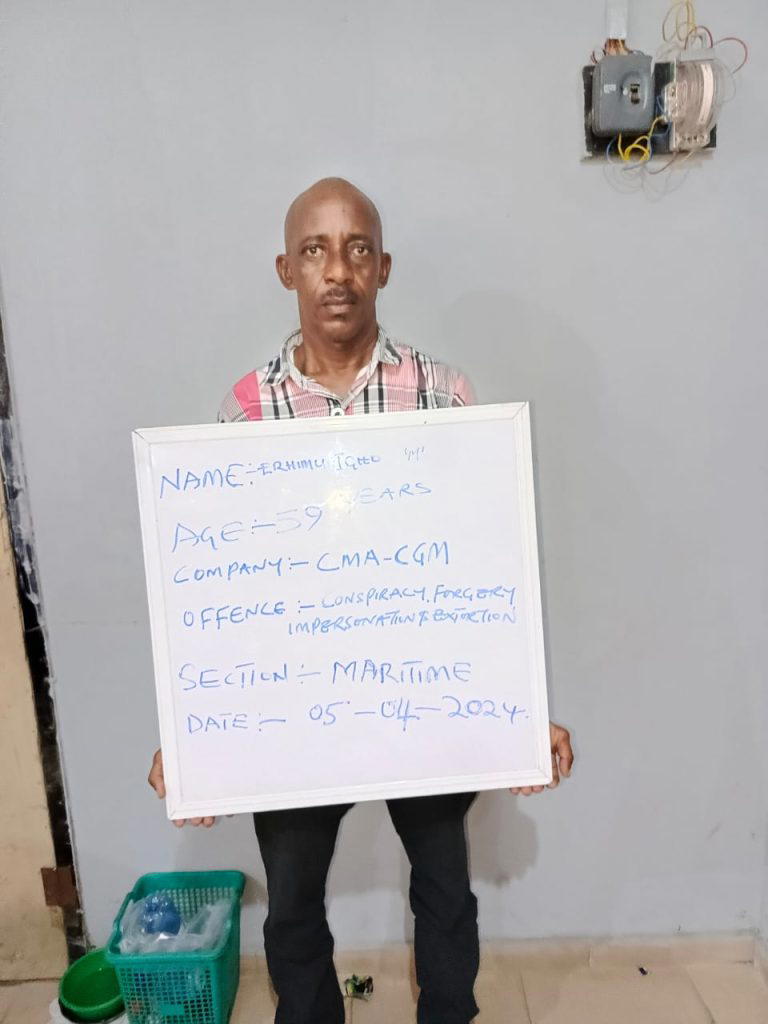 NAME:- ERHIMU IGHO "M"
AGE:- 59 YEARS
COMPANY:- CMA-CGM
OFFENCE:- CONSPIRACY, FORGERY,
IMPERSONATION & EXTORTION
SECTION:- MARITIME
DATE:- 05-04-2024.